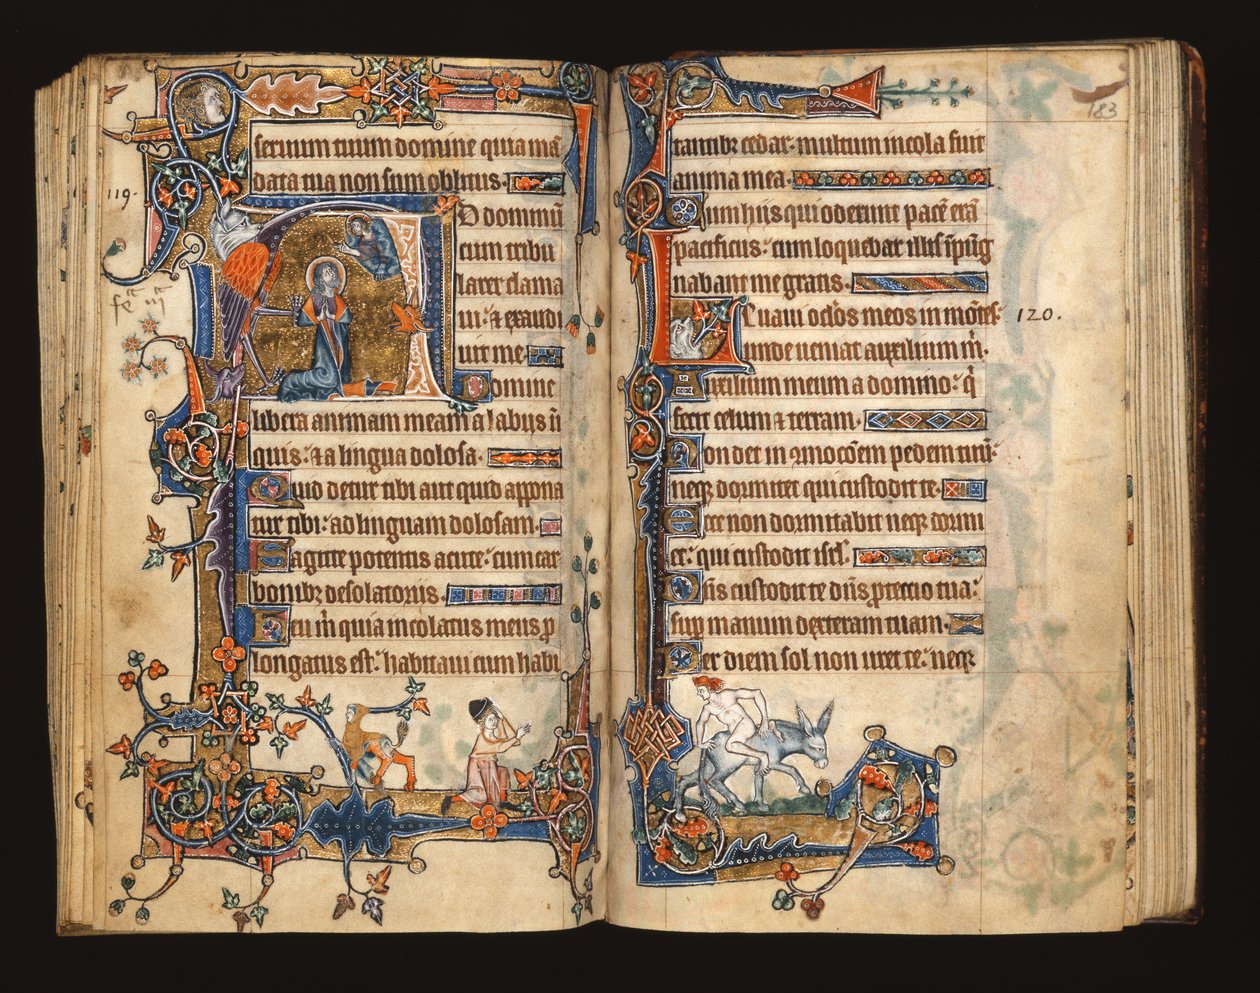 119.
seruum tuum domine quia mā
data tua non sum oblitus.
AD dominū
cum tribu
larer clama
ui: et exaudi
uit me
Domine
libera animam meam a labiis in
quis: et a lingua dolosa.
Quid detur tibi aut quid appona
tur tibi: ad linguam dolosam.
Sagitte potentis acute: cum car
bonibꝫ desolatoriis.
Heu m̄ quia incolatus meus ꝓ
longatus est: habitaui cum habi
183
tantibꝫ cedar: multum incola fuit
anima mea.
Cum hiis qui oderunt pacē erā
pacificus: cum loquebar illis īpug
nabant me gratis.
Leuaui oclōs meos in mōtes:
120.
unde ueniat auxilium m̄.
Auxilium meum a domino: q̄
fecit celum et terram.
Non det in ꝯmocōem pedem tuū:
neqꝫ dormitet qui custodit te.
Ecce non dormitabit neqꝫ dormi
et: qui custodit isrl.
Dn̄s custodit te dn̄s ꝓtectio tua:
sup manum dexteram tuam.
Per diem sol non uret te: neqꝫ